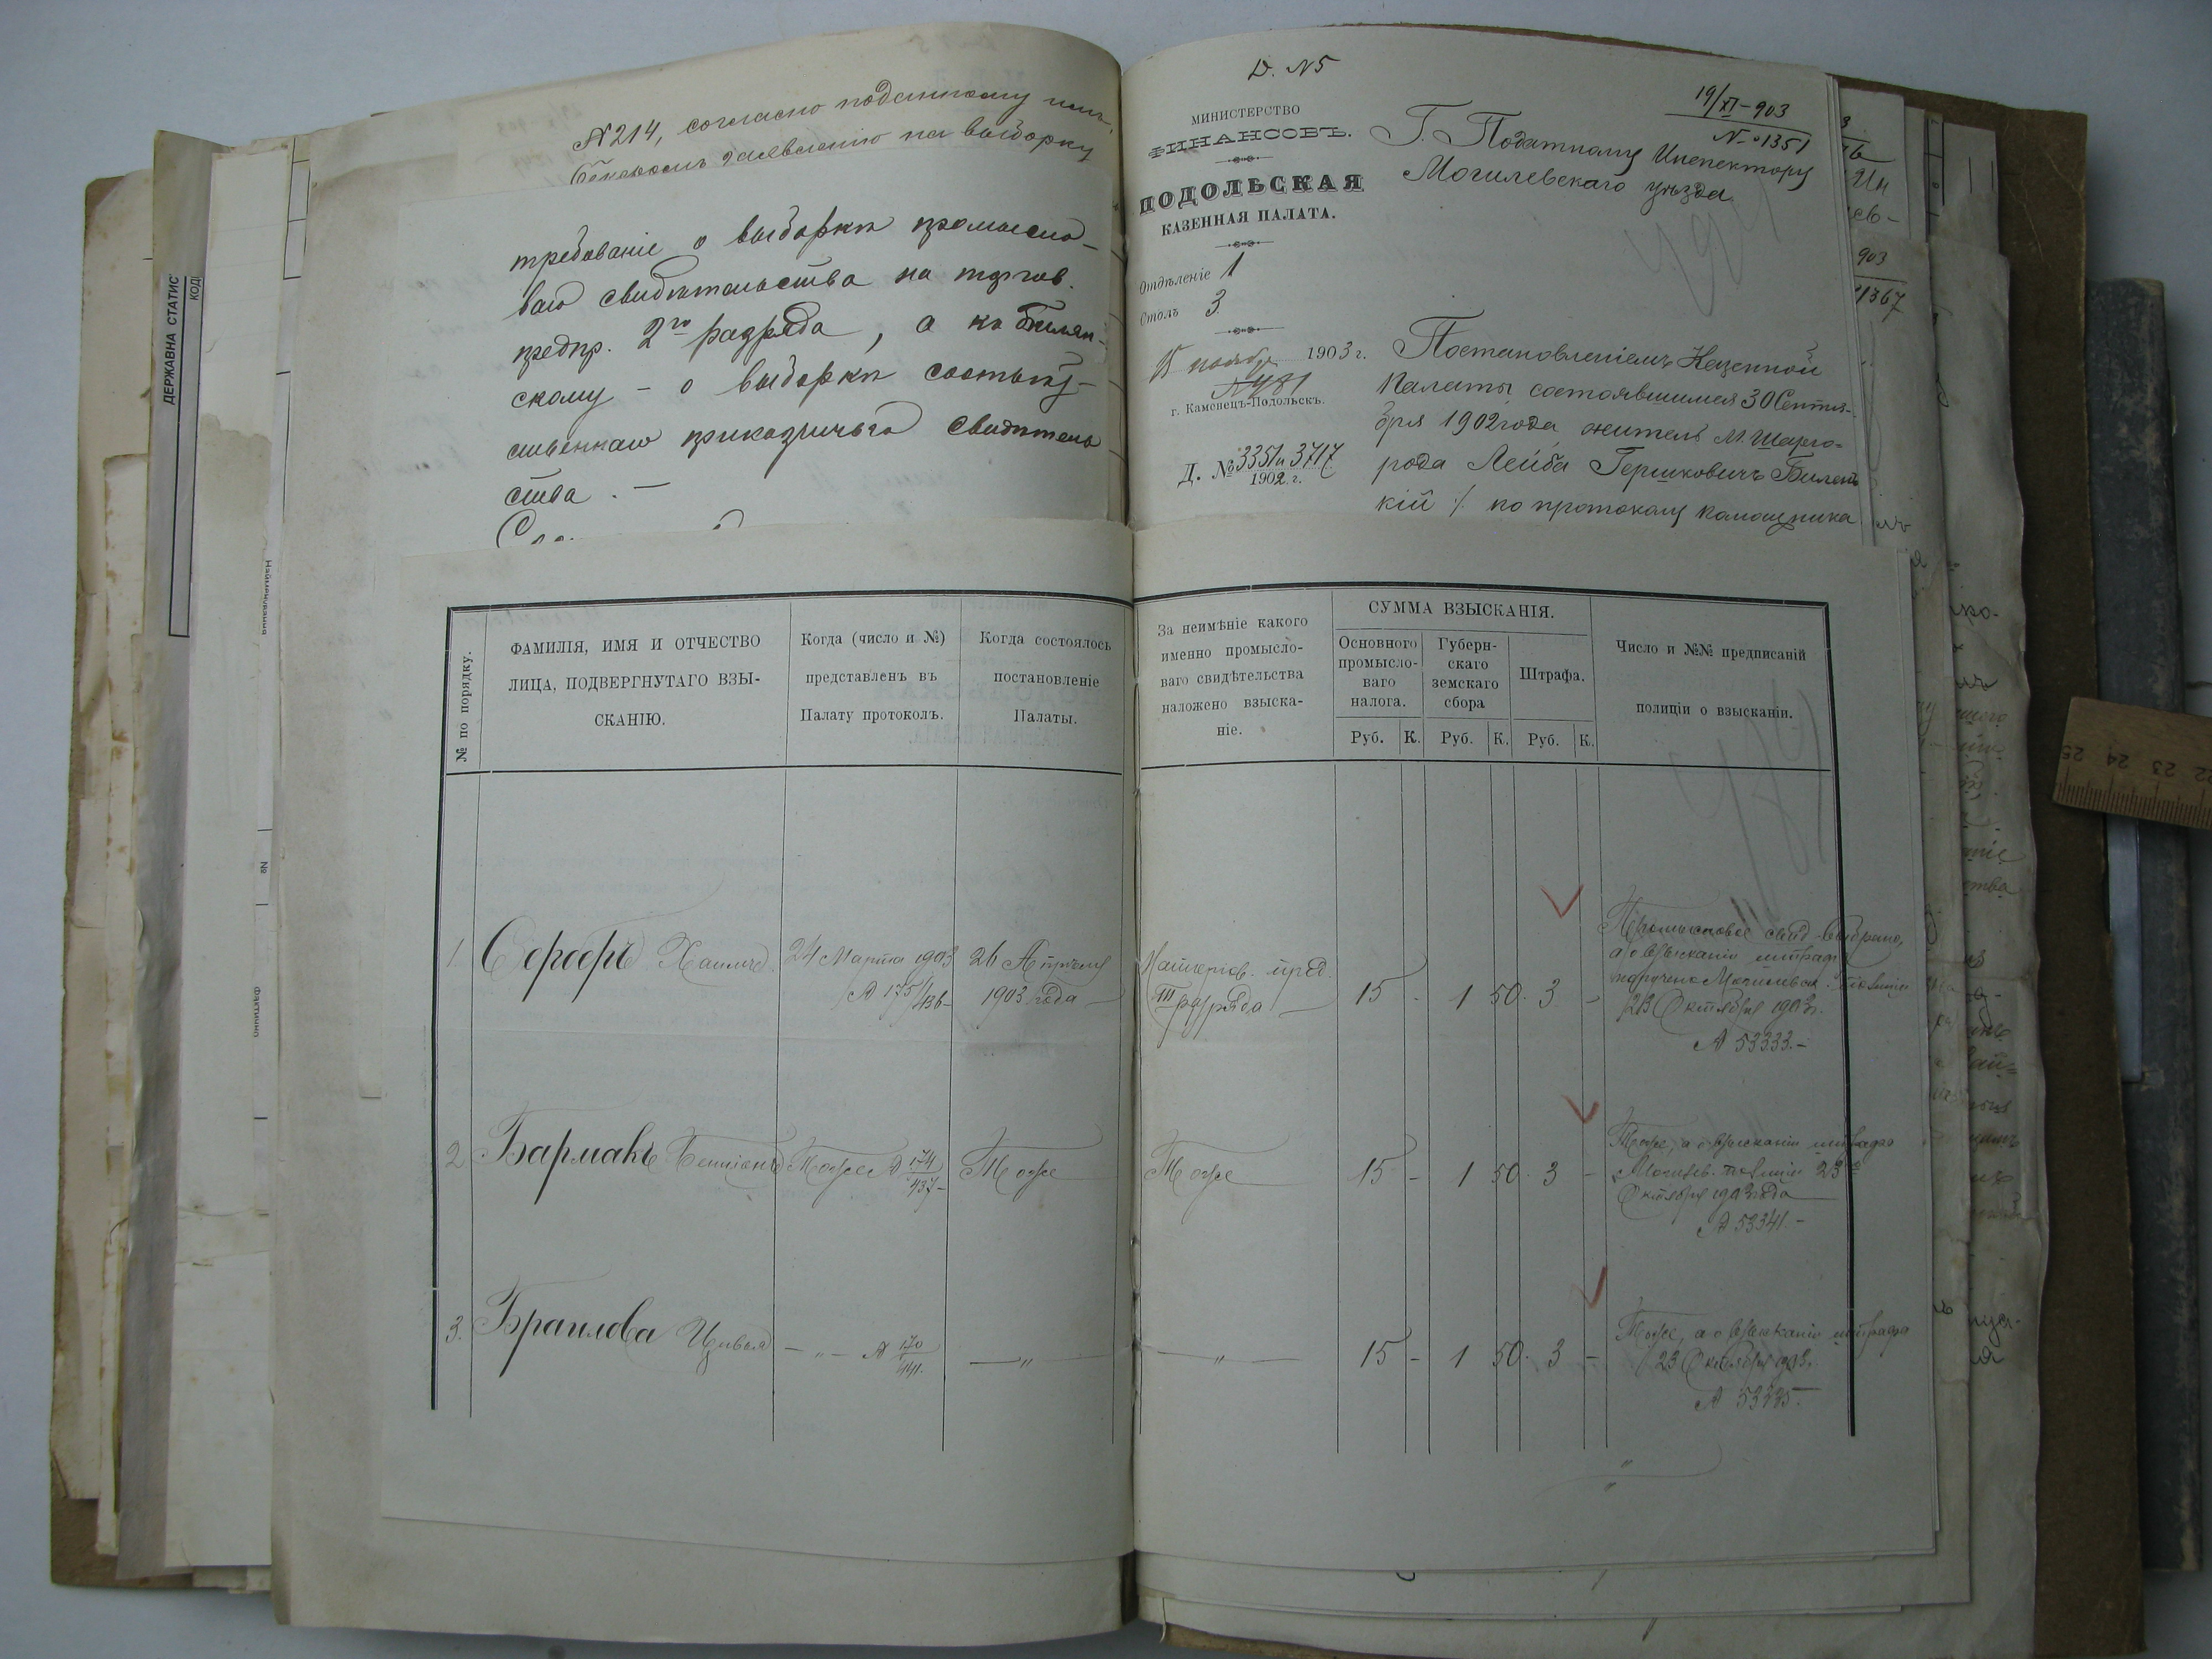 № 214, согласно поданному имъ
заявленію на выборку
требованіе о выборки промысло-
ваго свидѣтельства на торгов.
предпр. 2го разряда, а къ Билян-
скому – о выборки соотвѣт-
ственнаго приказчичьяго свидѣтель
ства. —
Д. №5
МИНИСТЕРСТВО
ФИНАНСОВЪ.
ПОДОЛЬСКАЯ
КАЗЕННАЯ ПАЛАТА.
Отдѣленіе 1
Столъ 3.
15 ноября 1903 г.
№ 481
г. Каменецъ-Подольскъ.
Д. № 3351 и 3717
1902 г.
19/XI–903
№ 1351
Г. Податному Инспектору
Могилевскаго уѣзда
Постановленіемъ Казенной
Палаты, состоявшимся 30 Сентя-
бря 1902 года, житель м. Шарго-
рода Лейба Гершковичъ Билец
кій /. по протоколу помощника
903
1367
ДЕРЖАВНА СТАТИС
КОДІ
Найменування
№
фактично
№ по порядку.
ФАМИЛІЯ, ИМЯ И ОТЧЕСТВО
ЛИЦА, ПОДВЕРГНУТАГО ВЗЫ-
СКАНІЮ.
Когда (число и №)
представленъ въ
Палату протоколъ.
Когда состоялось
постановленіе
Палаты.
За неимѣніе какого
именно промысло-
ваго свидѣтельства
наложено взыска-
ніе.
СУММА ВЗЫСКАНІЯ.
Основного
промысло-
ваго
налога.
Губерн-
скаго
земскаго
сбора
Штрафа.
Руб. К. Руб. К. Руб. К.
Число и №№ предписаній
полиціи о взысканіи.
1. Серберъ Хаимъ 24 Марта 1903 № 175/436– 26 Апрѣля 1903 года – III разряда 15 – 1 50. 3 –
Промысловое свид. выбрано,
а о взысканіи штрафа
поручено Могилевск. полиціи
23 Октября 1903 г.
№ 53333.–
2 Бармакъ Бенціонъ Тоже № 174/437– Тоже Тоже 15 – 1 50. 3 –
Тоже, а о взысканіи штрафа
Могилев. полиціи 23го
Октября 1903 года
№ 53341.–
3. Браилова Цивья – „ – № 170/441. – „ – – „ – 15 – 1 50. 3 –
Тоже, а о взысканіи штрафа
23 Октября 1903 г.
№ 53335.–
25 24 23 22